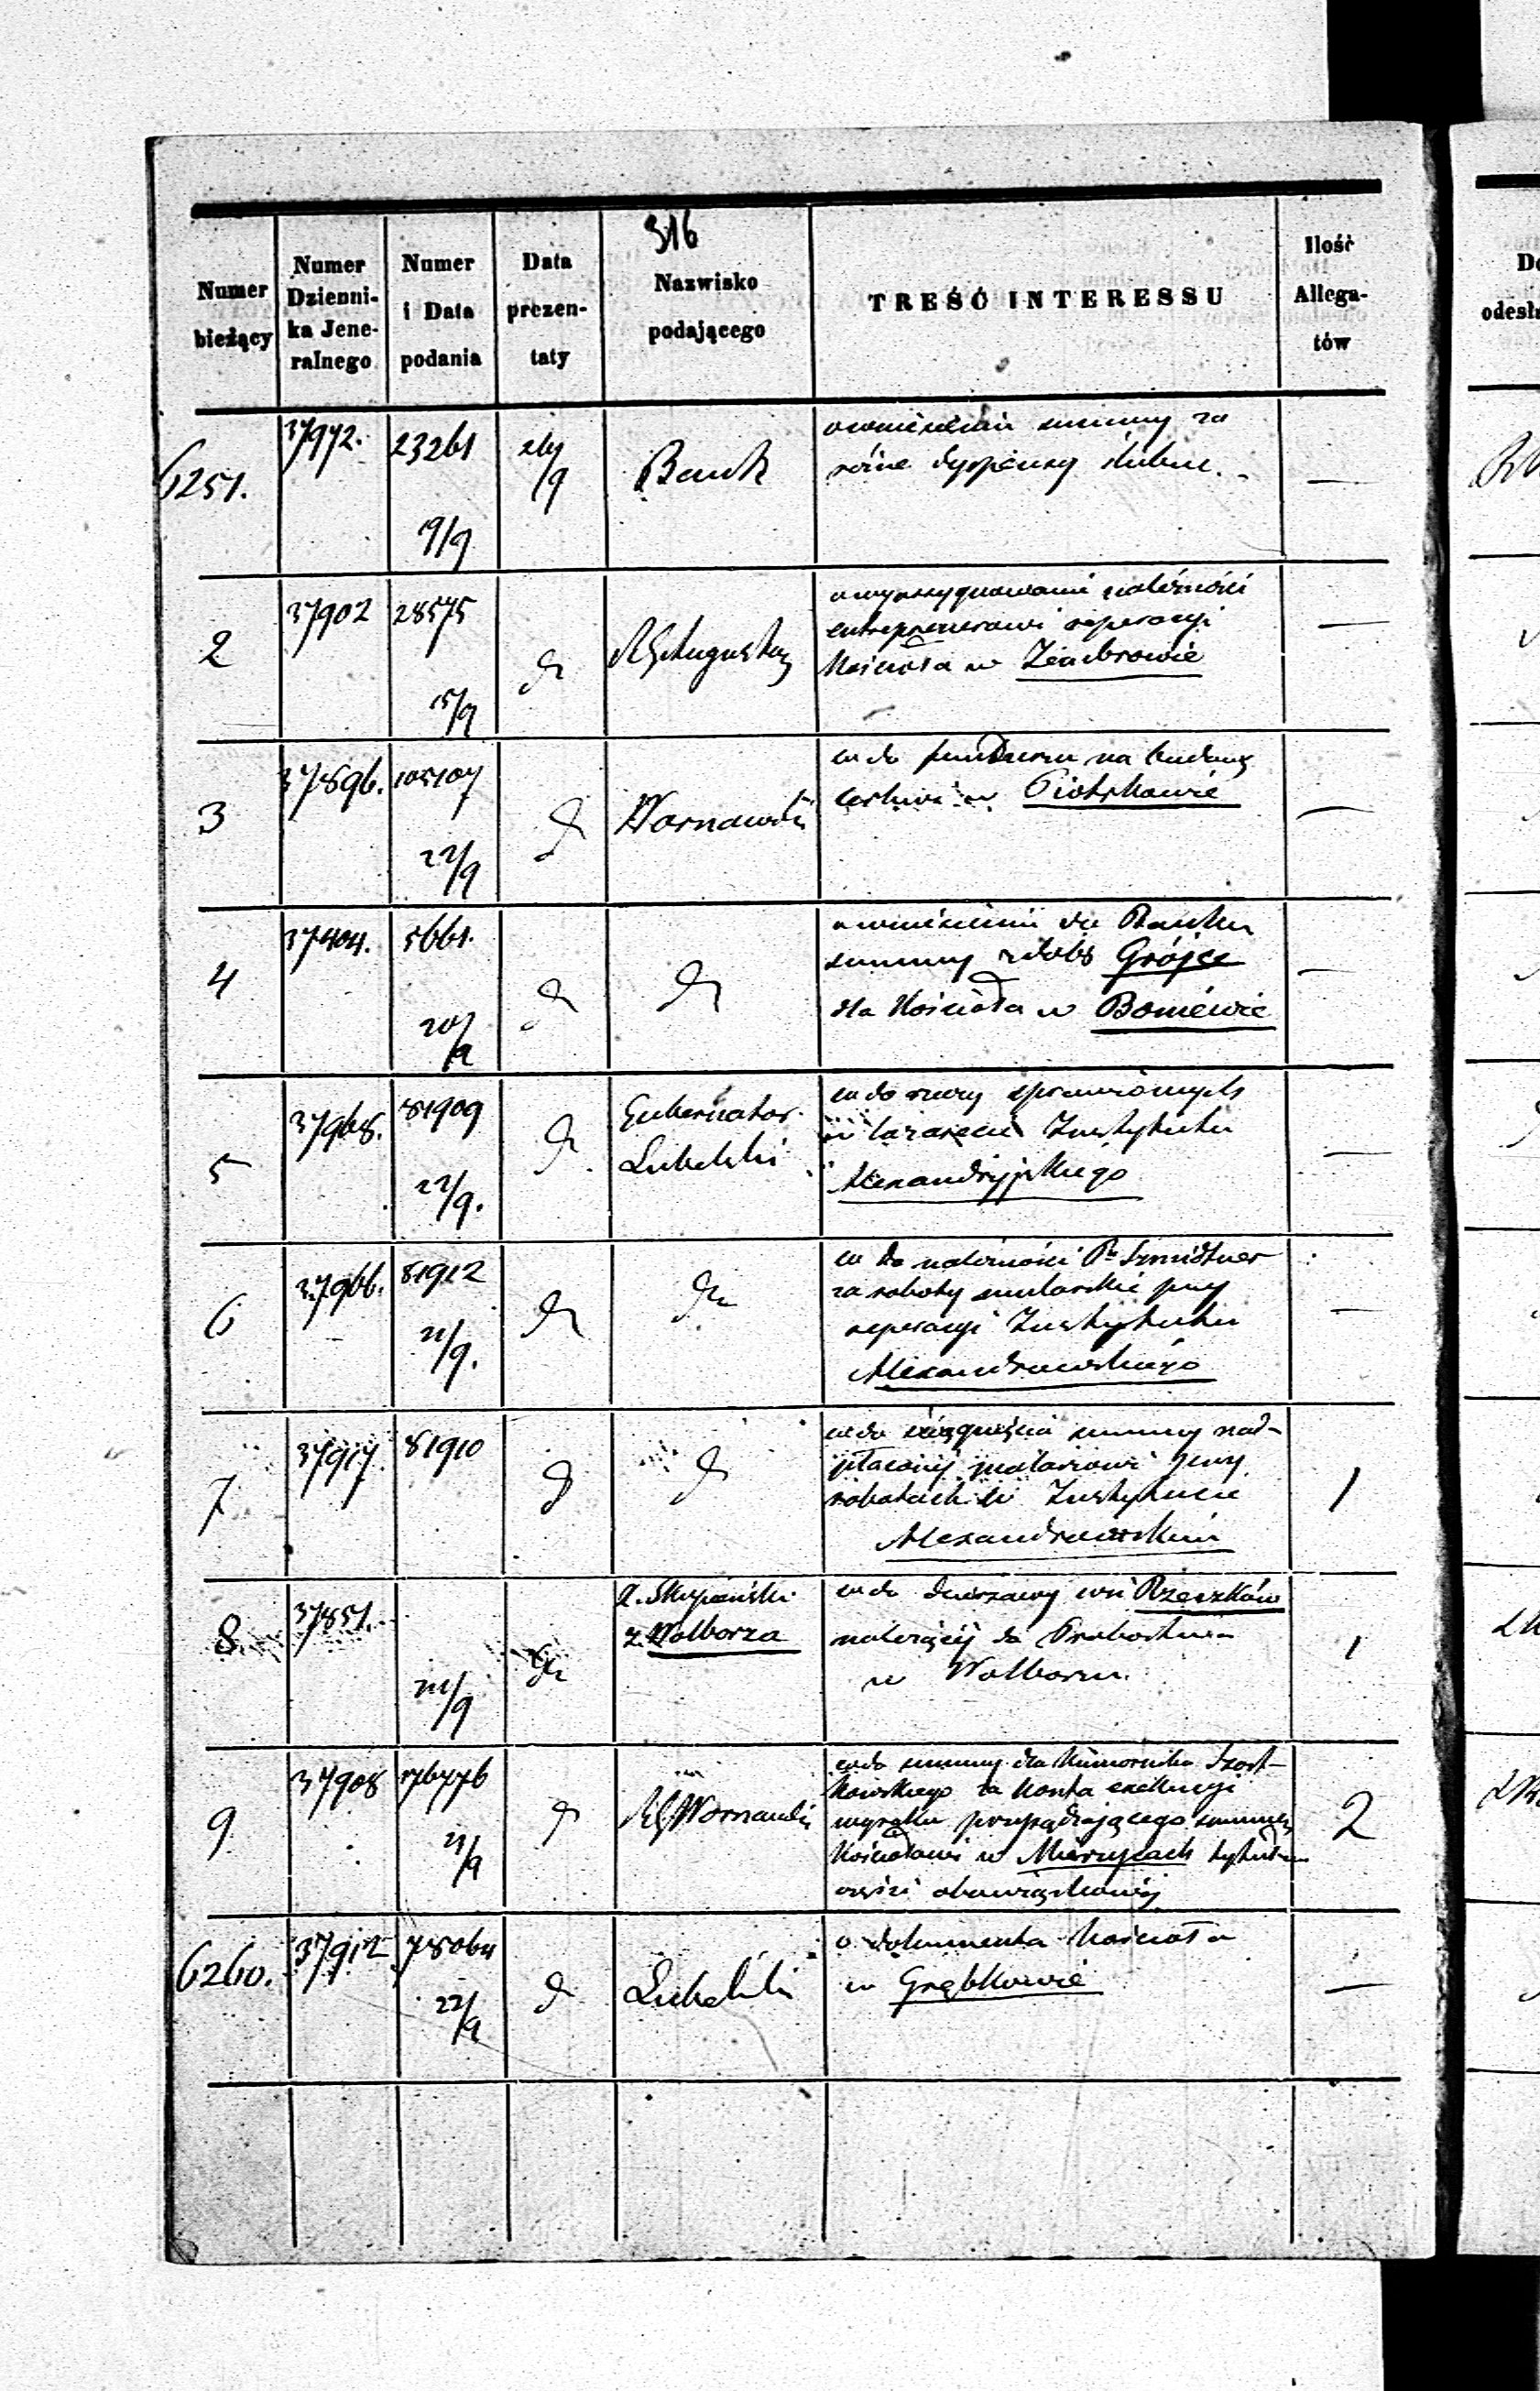 316
Numer bieżący
Numer Dzienni-ka Jene-ralnego
Numer i Data podania
Data prezen-taty
Nazwisko podającego
TREŚĆ INTERESSU
Ilość Allega-tów
6251.
37972.
23261
19/9
/9
Bank
o wniesieniu summy za
różne dyspensy ślubne.
—
2
37902
28575
15/9
RG Augustow
o wyassygnowanie należności
entreprenerowi reperacyi
Kościoła w Zambrowie
—
3
37896.
105107
22/9
Warszawski
co do funduszu na budowę
cerkwi w Piotrkowie
—
4
37404.
5661.
20/9
o wniesieniu do Banku
summy z dóbr Grójce
dla Kościoła w Boniewie
—
5
37968.
81909
22/9.
Gubernator
Lubelski
co do rzeczy sprawionych
w lazarecie Instytutu
Alexandryjskiego
—
6
37966.
81912
21/9.
co do należności Pa Szmidtner
za roboty mularskie przy
reperacyi Instytutu
Alexandrowskiego
—
7
37917.
81910
co do ściągnięcia summy nad-
płaconej malarzowi przy
robotach w Instytucie
Alexandrowskim
1
8.
37851.
/9
X. Skupieński
z Wolborza
co do dzierżawy wsi Rzeczków
należącej do Probostwa
w Wolborzu.
1
9
37908
76776
21/9
RG Warszawski
co do summy dla Komornika Szost-
kowskiego za koszta exekucyi
wyroku przysądzającego summę
Kościołowi w Mierzycach tytułem
części obowiązkowej
2
6260.
37912
78064
22/9
Lubelski
o dokumenta Kościoła
w Grębkowie
—